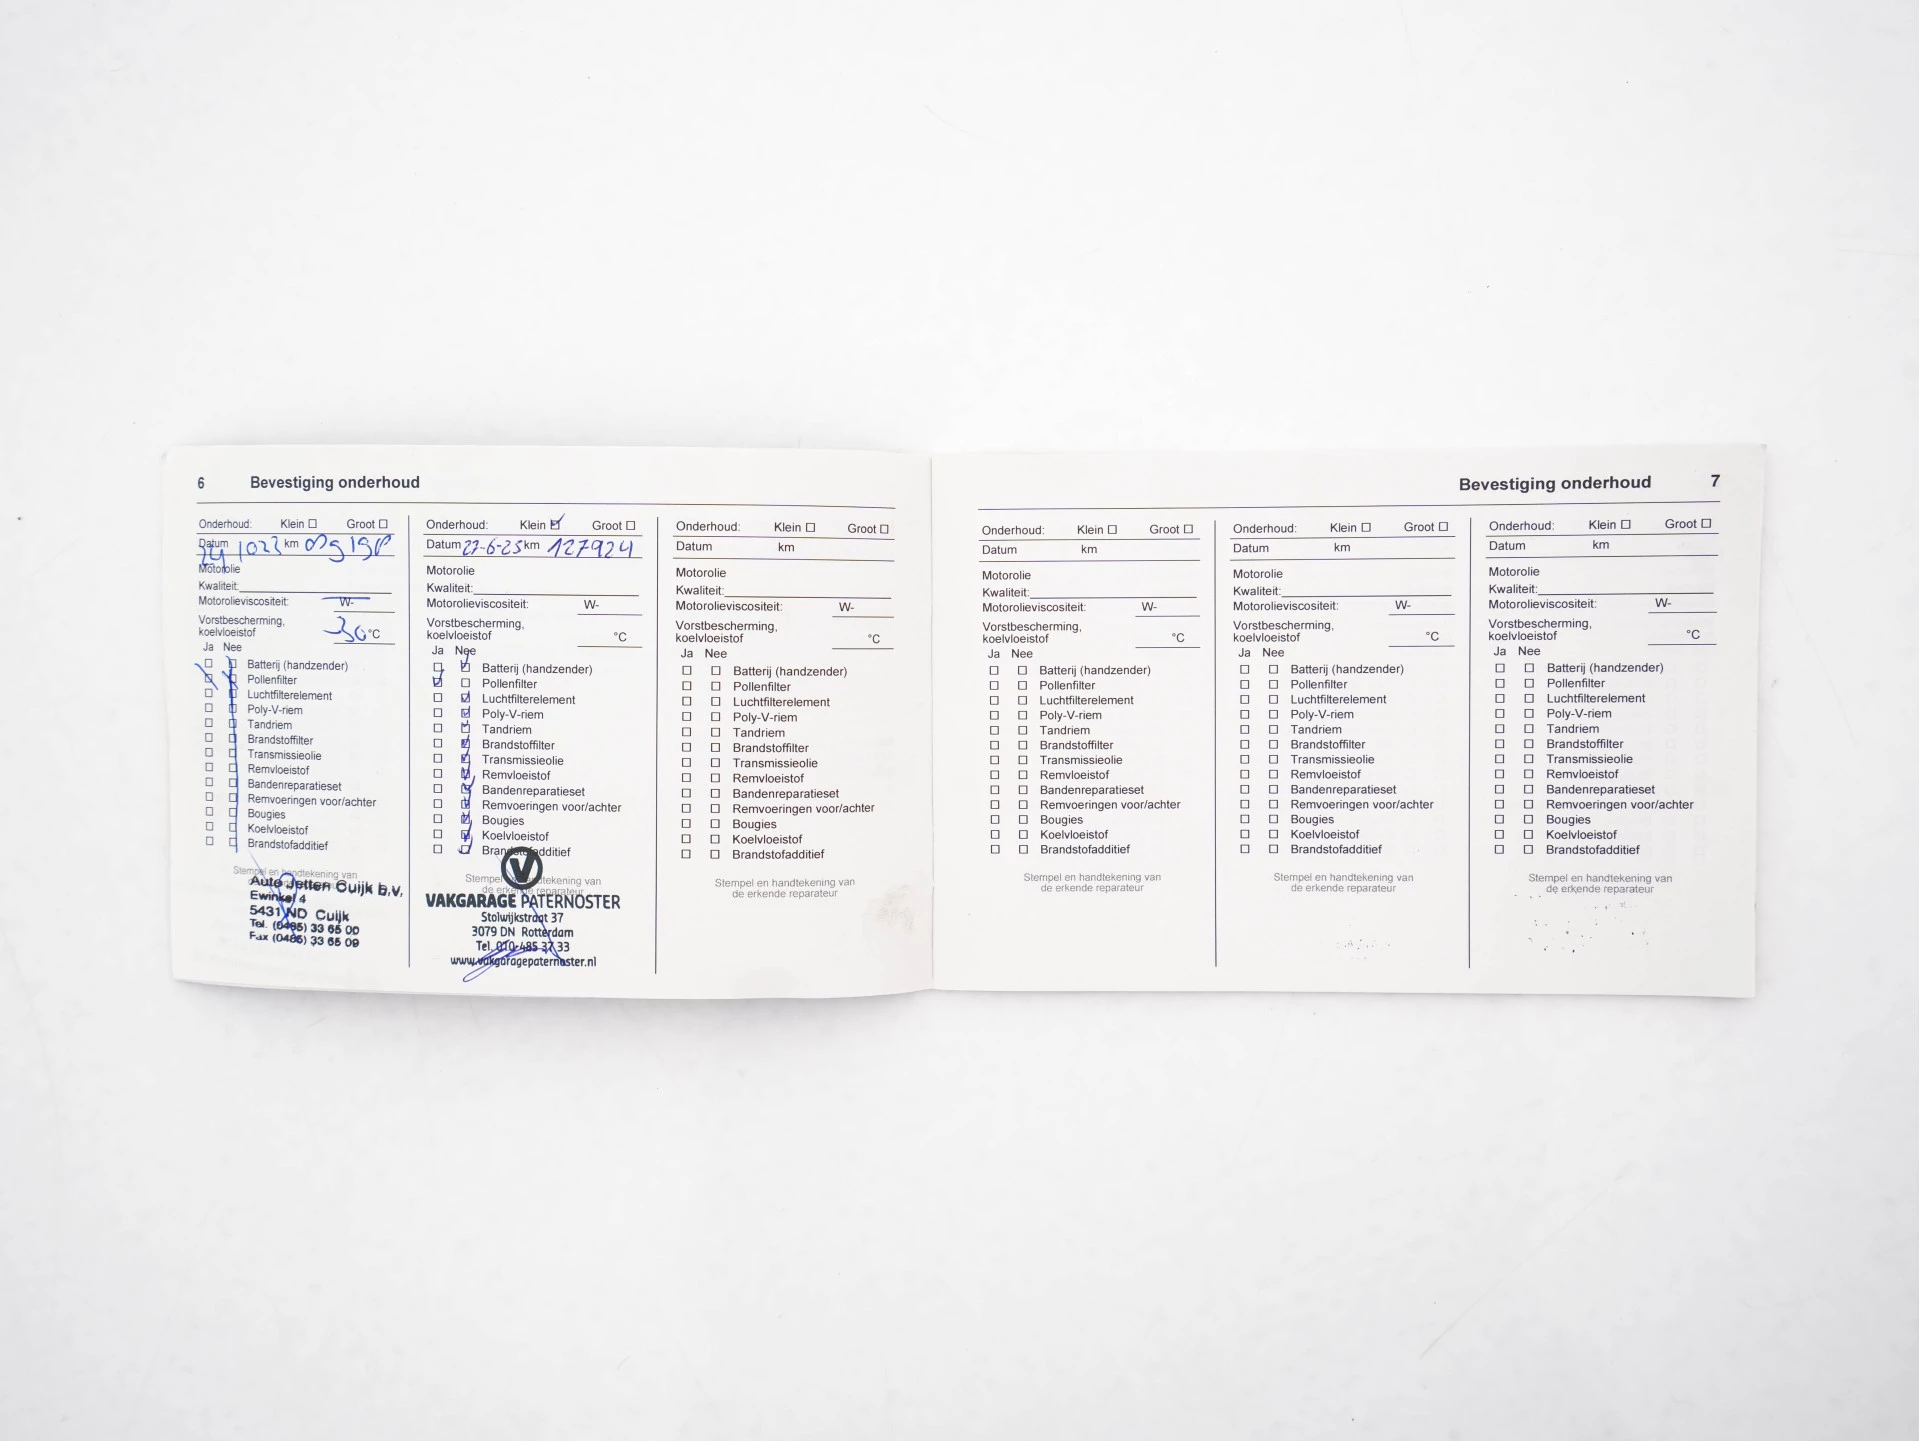 6 Bevestiging onderhoud
Onderhoud: Klein Groot
Datum km
Motorolie
Kwaliteit:
Motorolieviscositeit: W-
Vorstbescherming,
koelvloeistof -30 °C
Ja Nee
Batterij (handzender)
Pollenfilter
Luchtfilterelement
Poly-V-riem
Tandriem
Brandstoffilter
Transmissieolie
Remvloeistof
Bandenreparatieset
Remvoeringen voor/achter
Bougies
Koelvloeistof
Brandstofadditief
Stempel en handtekening van
Auto Jetten Cuijk b.v.
Ewinkel 4
5431 ND Cuijk
Tel. (0485) 33 65 00
Fax (0485) 33 65 09
Onderhoud: Klein Groot
Datum 27-6-25 km 127924
Motorolie
Kwaliteit:
Motorolieviscositeit: W-
Vorstbescherming,
koelvloeistof °C
Ja Nee
Batterij (handzender)
Pollenfilter
Luchtfilterelement
Poly-V-riem
Tandriem
Brandstoffilter
Transmissieolie
Remvloeistof
Bandenreparatieset
Remvoeringen voor/achter
Bougies
Koelvloeistof
Brandstofadditief
Stempel en handtekening van
de erkende reparateur
V
VAKGARAGE PATERNOSTER
Stolwijkstraat 37
3079 DN Rotterdam
Tel. 010-485 37 33
www.vakgaragepaternoster.nl
Onderhoud: Klein Groot
Datum km
Motorolie
Kwaliteit:
Motorolieviscositeit: W-
Vorstbescherming,
koelvloeistof °C
Ja Nee
Batterij (handzender)
Pollenfilter
Luchtfilterelement
Poly-V-riem
Tandriem
Brandstoffilter
Transmissieolie
Remvloeistof
Bandenreparatieset
Remvoeringen voor/achter
Bougies
Koelvloeistof
Brandstofadditief
Stempel en handtekening van
de erkende reparateur
Bevestiging onderhoud 7
Onderhoud: Klein Groot
Datum km
Motorolie
Kwaliteit:
Motorolieviscositeit: W-
Vorstbescherming,
koelvloeistof °C
Ja Nee
Batterij (handzender)
Pollenfilter
Luchtfilterelement
Poly-V-riem
Tandriem
Brandstoffilter
Transmissieolie
Remvloeistof
Bandenreparatieset
Remvoeringen voor/achter
Bougies
Koelvloeistof
Brandstofadditief
Stempel en handtekening van
de erkende reparateur
Onderhoud: Klein Groot
Datum km
Motorolie
Kwaliteit:
Motorolieviscositeit: W-
Vorstbescherming,
koelvloeistof °C
Ja Nee
Batterij (handzender)
Pollenfilter
Luchtfilterelement
Poly-V-riem
Tandriem
Brandstoffilter
Transmissieolie
Remvloeistof
Bandenreparatieset
Remvoeringen voor/achter
Bougies
Koelvloeistof
Brandstofadditief
Stempel en handtekening van
de erkende reparateur
Onderhoud: Klein Groot
Datum km
Motorolie
Kwaliteit:
Motorolieviscositeit: W-
Vorstbescherming,
koelvloeistof °C
Ja Nee
Batterij (handzender)
Pollenfilter
Luchtfilterelement
Poly-V-riem
Tandriem
Brandstoffilter
Transmissieolie
Remvloeistof
Bandenreparatieset
Remvoeringen voor/achter
Bougies
Koelvloeistof
Brandstofadditief
Stempel en handtekening van
de erkende reparateur